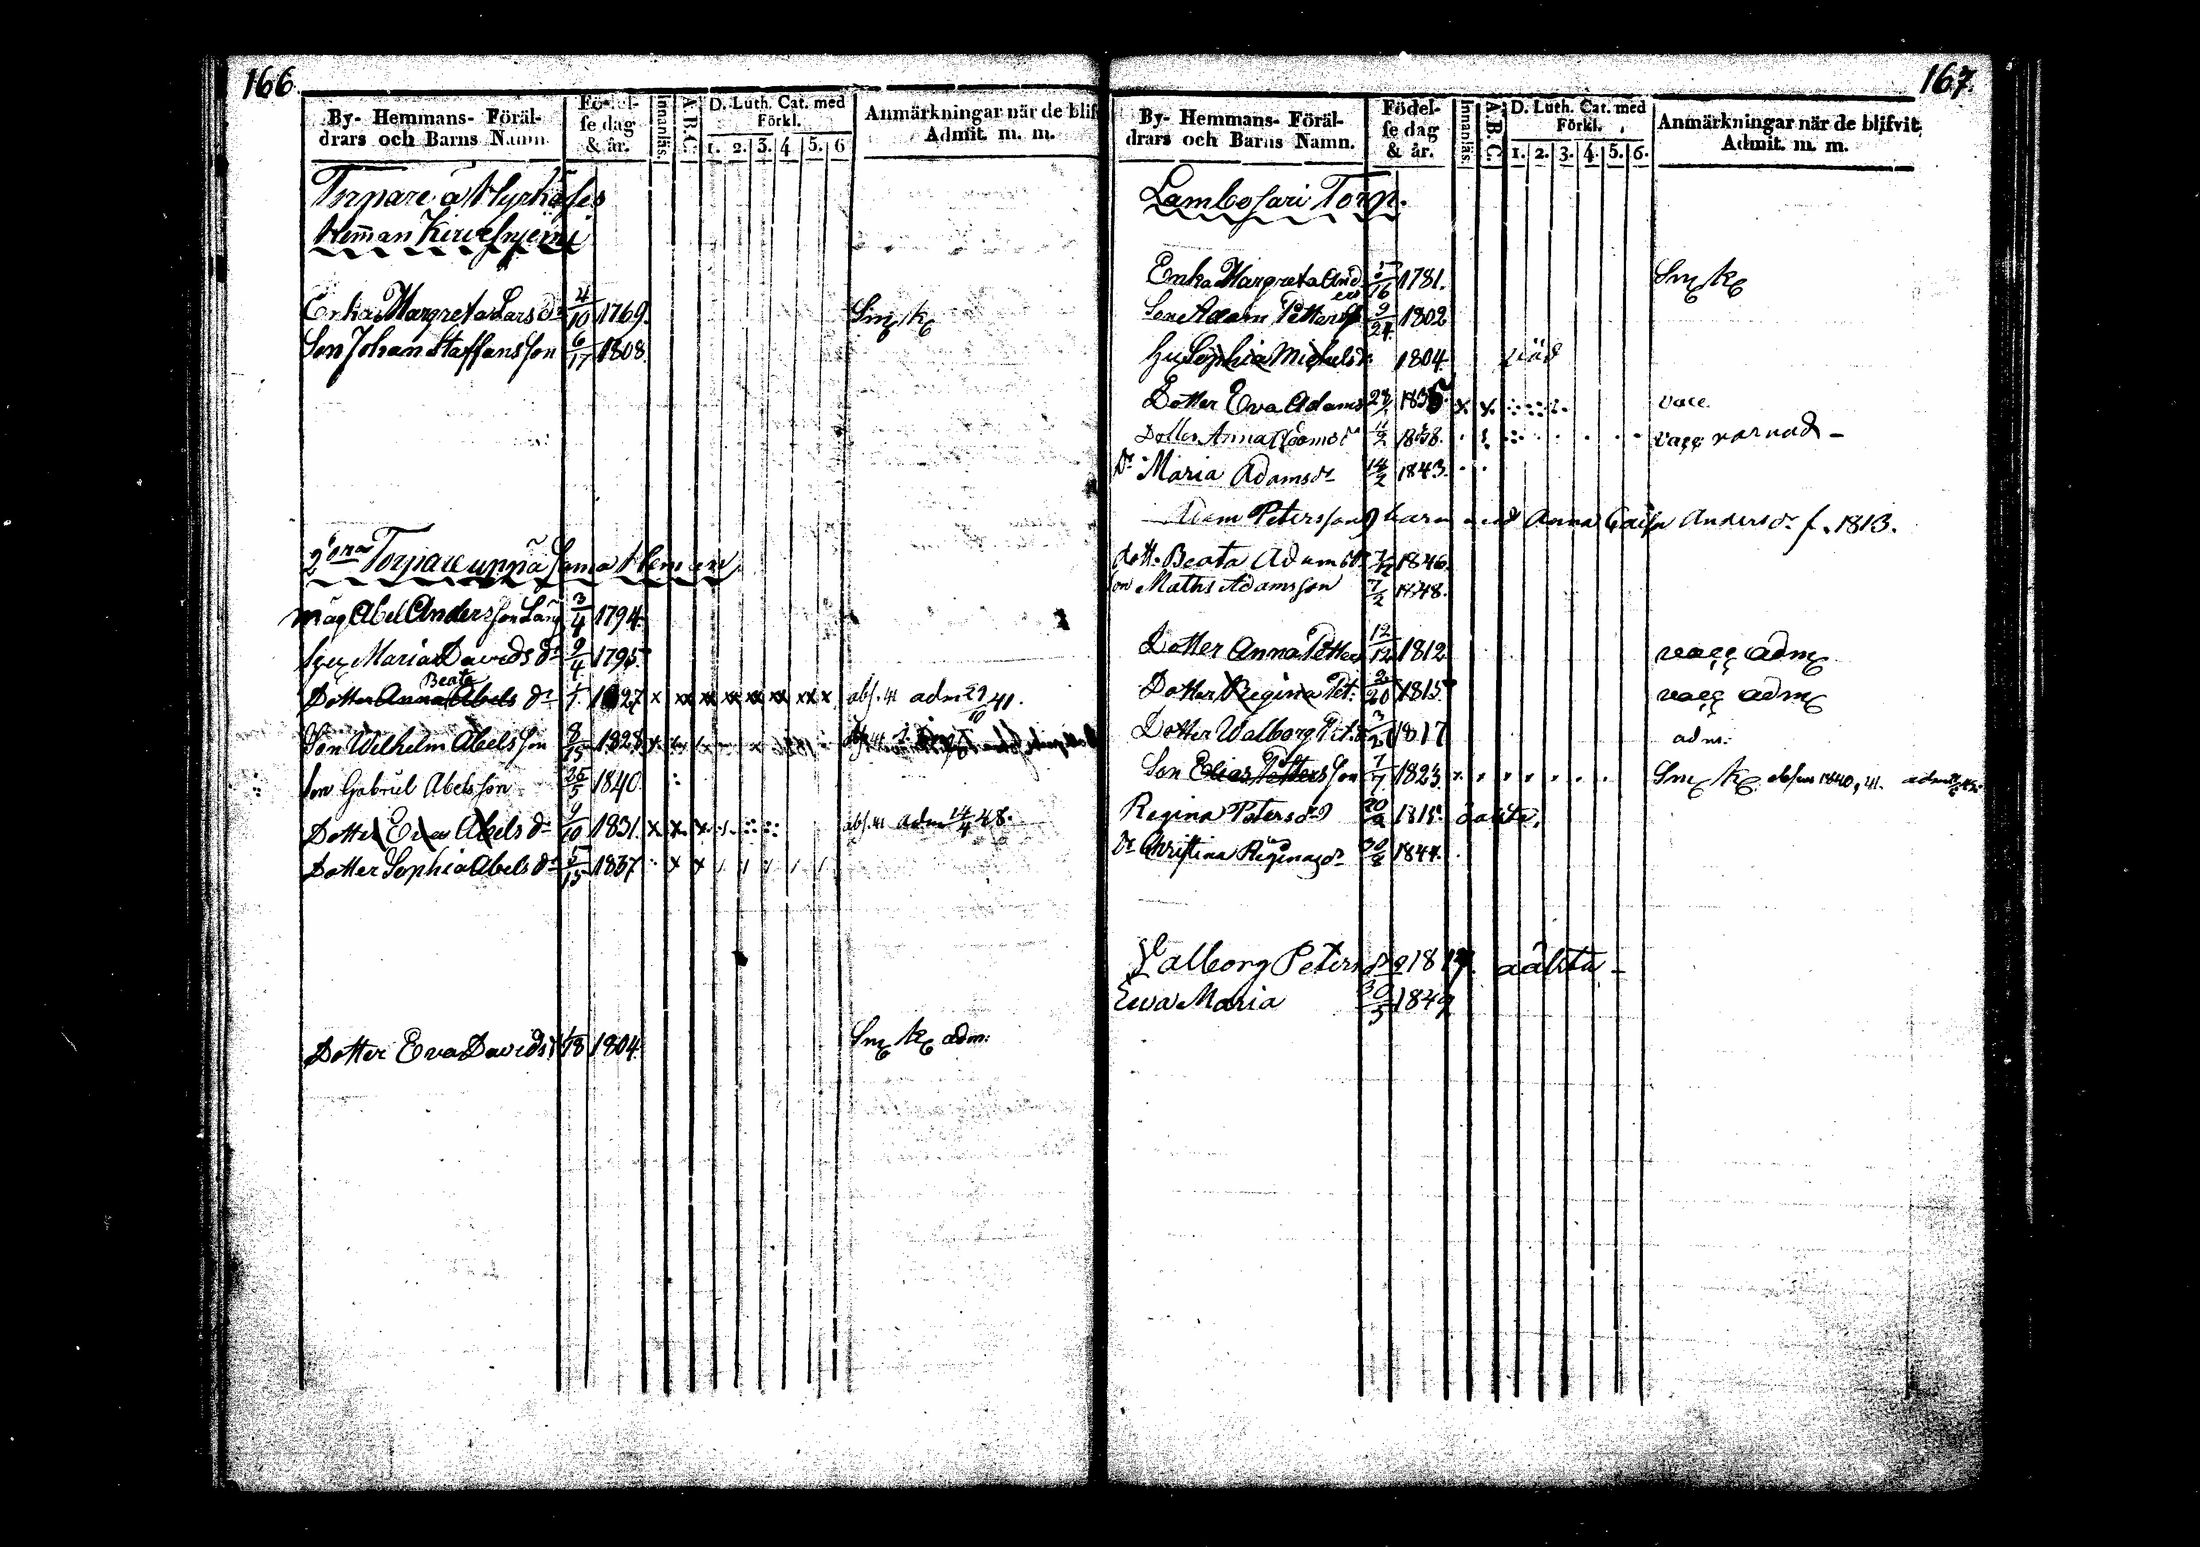 166.
By- Hemmans- Föräl-
drars och Barns Namn.
Födel-
se dag
& år.
Innanläs.
A.B.C.
D. Luth. Cat. med
Förkl.
1. 2. 3. 4 5. 6
Anmärkningar när de blif
Admit. m. m.
Torpare å
Hemman
Enka Margreta Lars dr 4/10 1769. Smk
Son Johan Staffansson 6/17 1808.
2dra Torpare uppå sama Hemman
måg Abel Andersson Lång 3/4 1794
Maria Davids dr 9/4 1795
Beata
Dotter Anna Abels dr 1827 x xx xx xx xx xx x abs. 41 adm 29/10 41.
Son Wilhelm Abelsson 8/15 1828
Son Gabriel Abelsson 26/5 1840
Dotter Eva Abels dr 9/10 1831. abs. 41 adm 14/4 48.
Dotter Sophia Abels dr 5/15 1837
Dotter Eva Davids 1804 Smk adm:
167.
By- Hemmans- Föräl-
drars och Barns Namn.
Födel-
se dag
& år.
Innanläs.
A.B.C.
D. Luth. Cat. med
Förkl.
1. 2. 3. 4. 5. 6.
Anmärkningar när de blifvit
Admit. m. m.
Lambosari Torp.
Enka Margreta And
ers 5/16 1781. Smk
Son Adam Petters 9/24 1802
Hu Sophia Michels dr 1804 död
Dotter Eva Adams 1835 vacc.
Dotter Anna Adams dr 11/2 1838. vacc varnad -
Dr Maria Adams dr 14/2 1843.
Adam Peterssons barn med Anna Caisa Anders dr f. 1813.
dott. Beata Adams dr 1846.
son Maths Adamsson 7/2 1848.
Dotter Anna Petters 12/12 1812 vacc adm
Dotter Regina Pet. 2/20 1815 vacc adm
Dotter Walborg Pet. 1817 adm.
Son Elias Pettersson 7/7 1823. Smk absens 1840, 41.
Regina Peters dr 20/2 1815. oäkta.
Dr Christina Regina 1844.
Valborg Peters dr 1817. oäkta -
Ewa Maria 30/5 1849